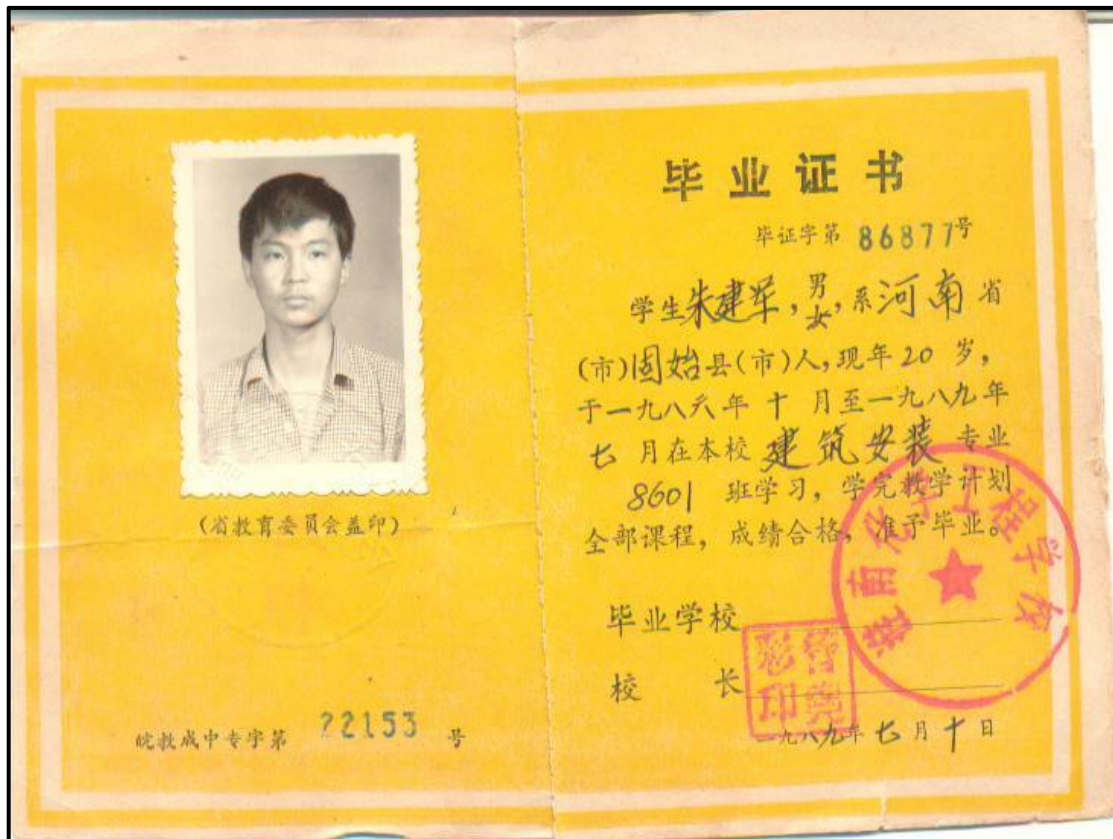 (省教育委员会盖印)
皖教成中专字第 22153 号
毕业证书
毕证字第 86877号
学生朱建军，男女，系河南省
(市)固始县(市)人，现年20岁，
于一九八六年十月至一九八九年
七月在本校建筑安装专业
8601班学习，学完教学计划
全部课程，成绩合格，准予毕业。
毕业学校
校 长
一九八九年七月十日